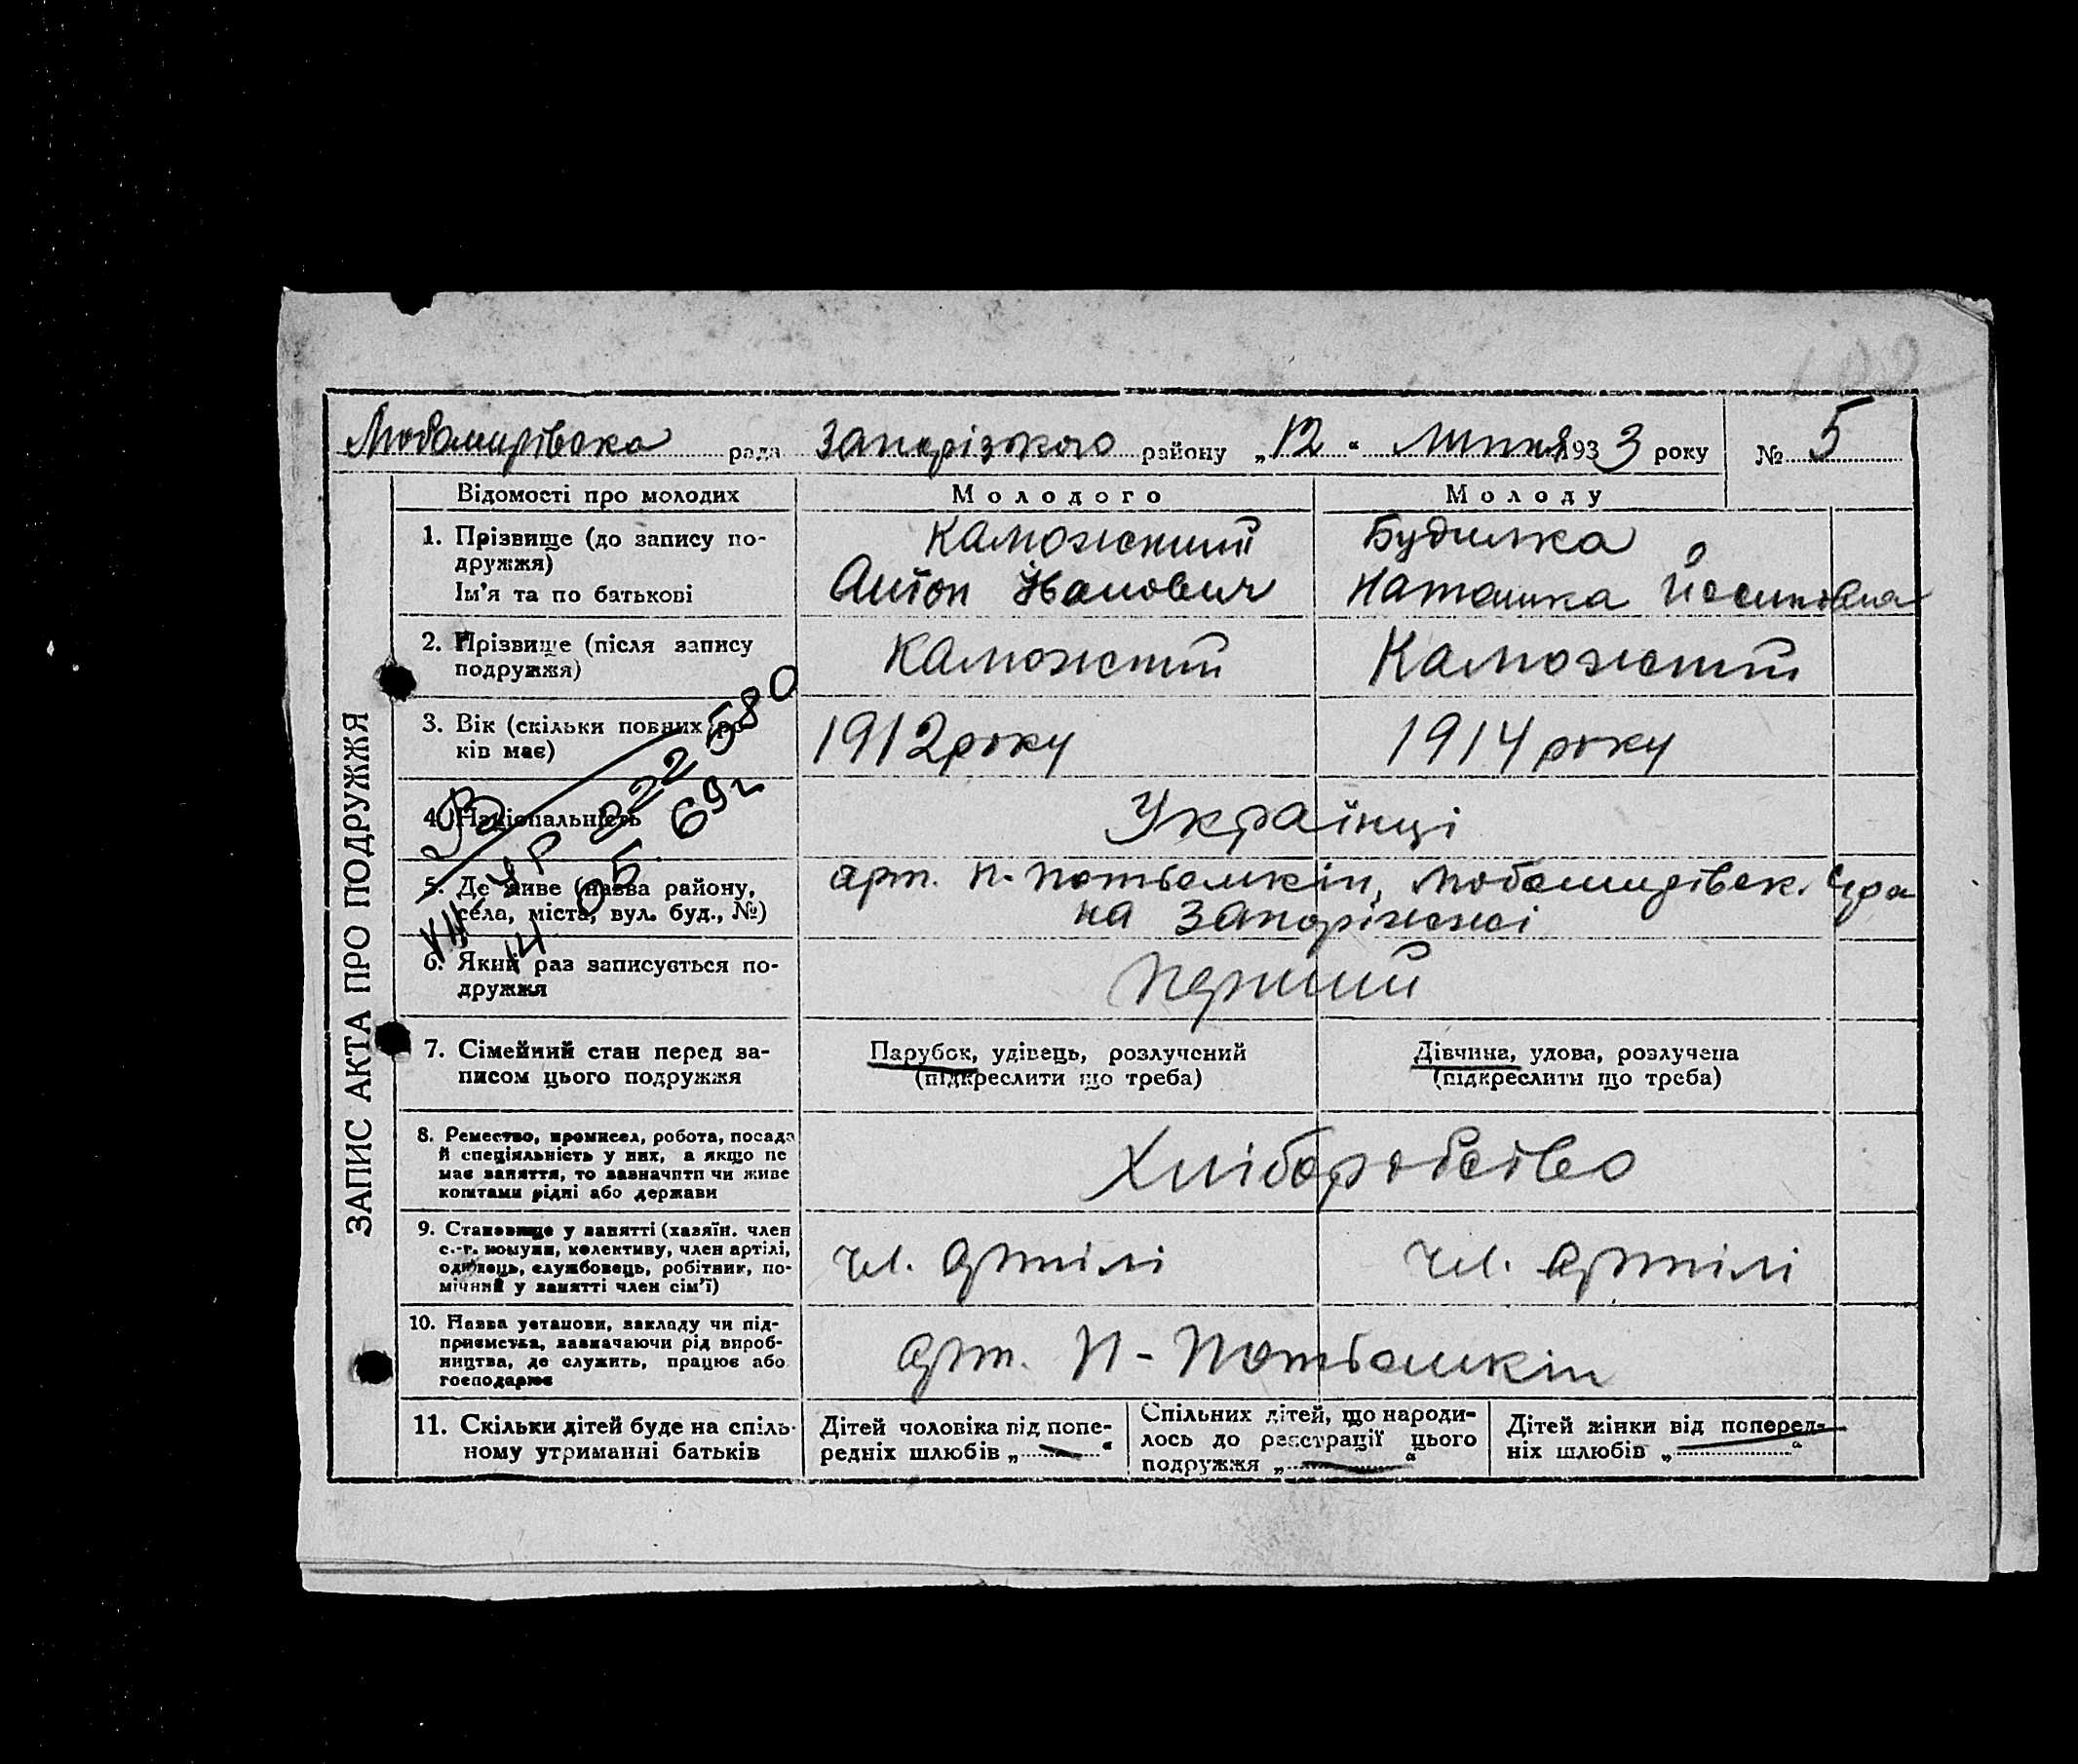 Любомирівська рада Запорізького району „12“ Липня 1933 року № 5
ЗАПИС АКТА ПРО ПОДРУЖЖЯ
Відомості про молодих Молодого Молоду
1. Прізвище (до запису по-
дружжя)
Ім'я та по батькові
Будилка
Антон Іванович
Наташка Йосиповна
2. Прізвище (після запису
подружжя)
3. Вік (скільки повних ро-
ків має)
1912 року 1914 року
4. Національність
Українці
5. Де живе (назва району,
села, міста, вул. буд., №)
арт. П-Потьомкін,
на Запоріжжі
6. Який раз записується по-
дружжя
Перший
7. Сімейний стан перед за-
писом цього подружжя
Парубок, удівець, розлучений
(підкреслити що треба)
Дівчина, удова, розлучена
(підкреслити що треба)
8. Ремество, промисел, робота, посада
й спеціяльність у них, а якщо не
має заняття, то зазначити чи живе
коштами рідні або держави
Хліборобство
9. Становище у занятті (хазяїн. член
с.-г. комуни, колективу, член артілі,
одинець, службовець, робітник, по-
мічний у занятті член сім'ї)
чл. Артілі чл. Артілі
10. Назва установи, закладу чи під-
приємства, зазначаючи рід вироб-
ництва, де служить, працює або
господарює
арт. П-Потьомкін
11. Скільки дітей буде на спіль-
ному утриманні батьків
Дітей чоловіка від попе-
редніх шлюбів „ “
Спільних дітей, що народи-
лось до реєстрації цього
подружжя „ “
Дітей жінки від поперед-
ніх шлюбів „ “